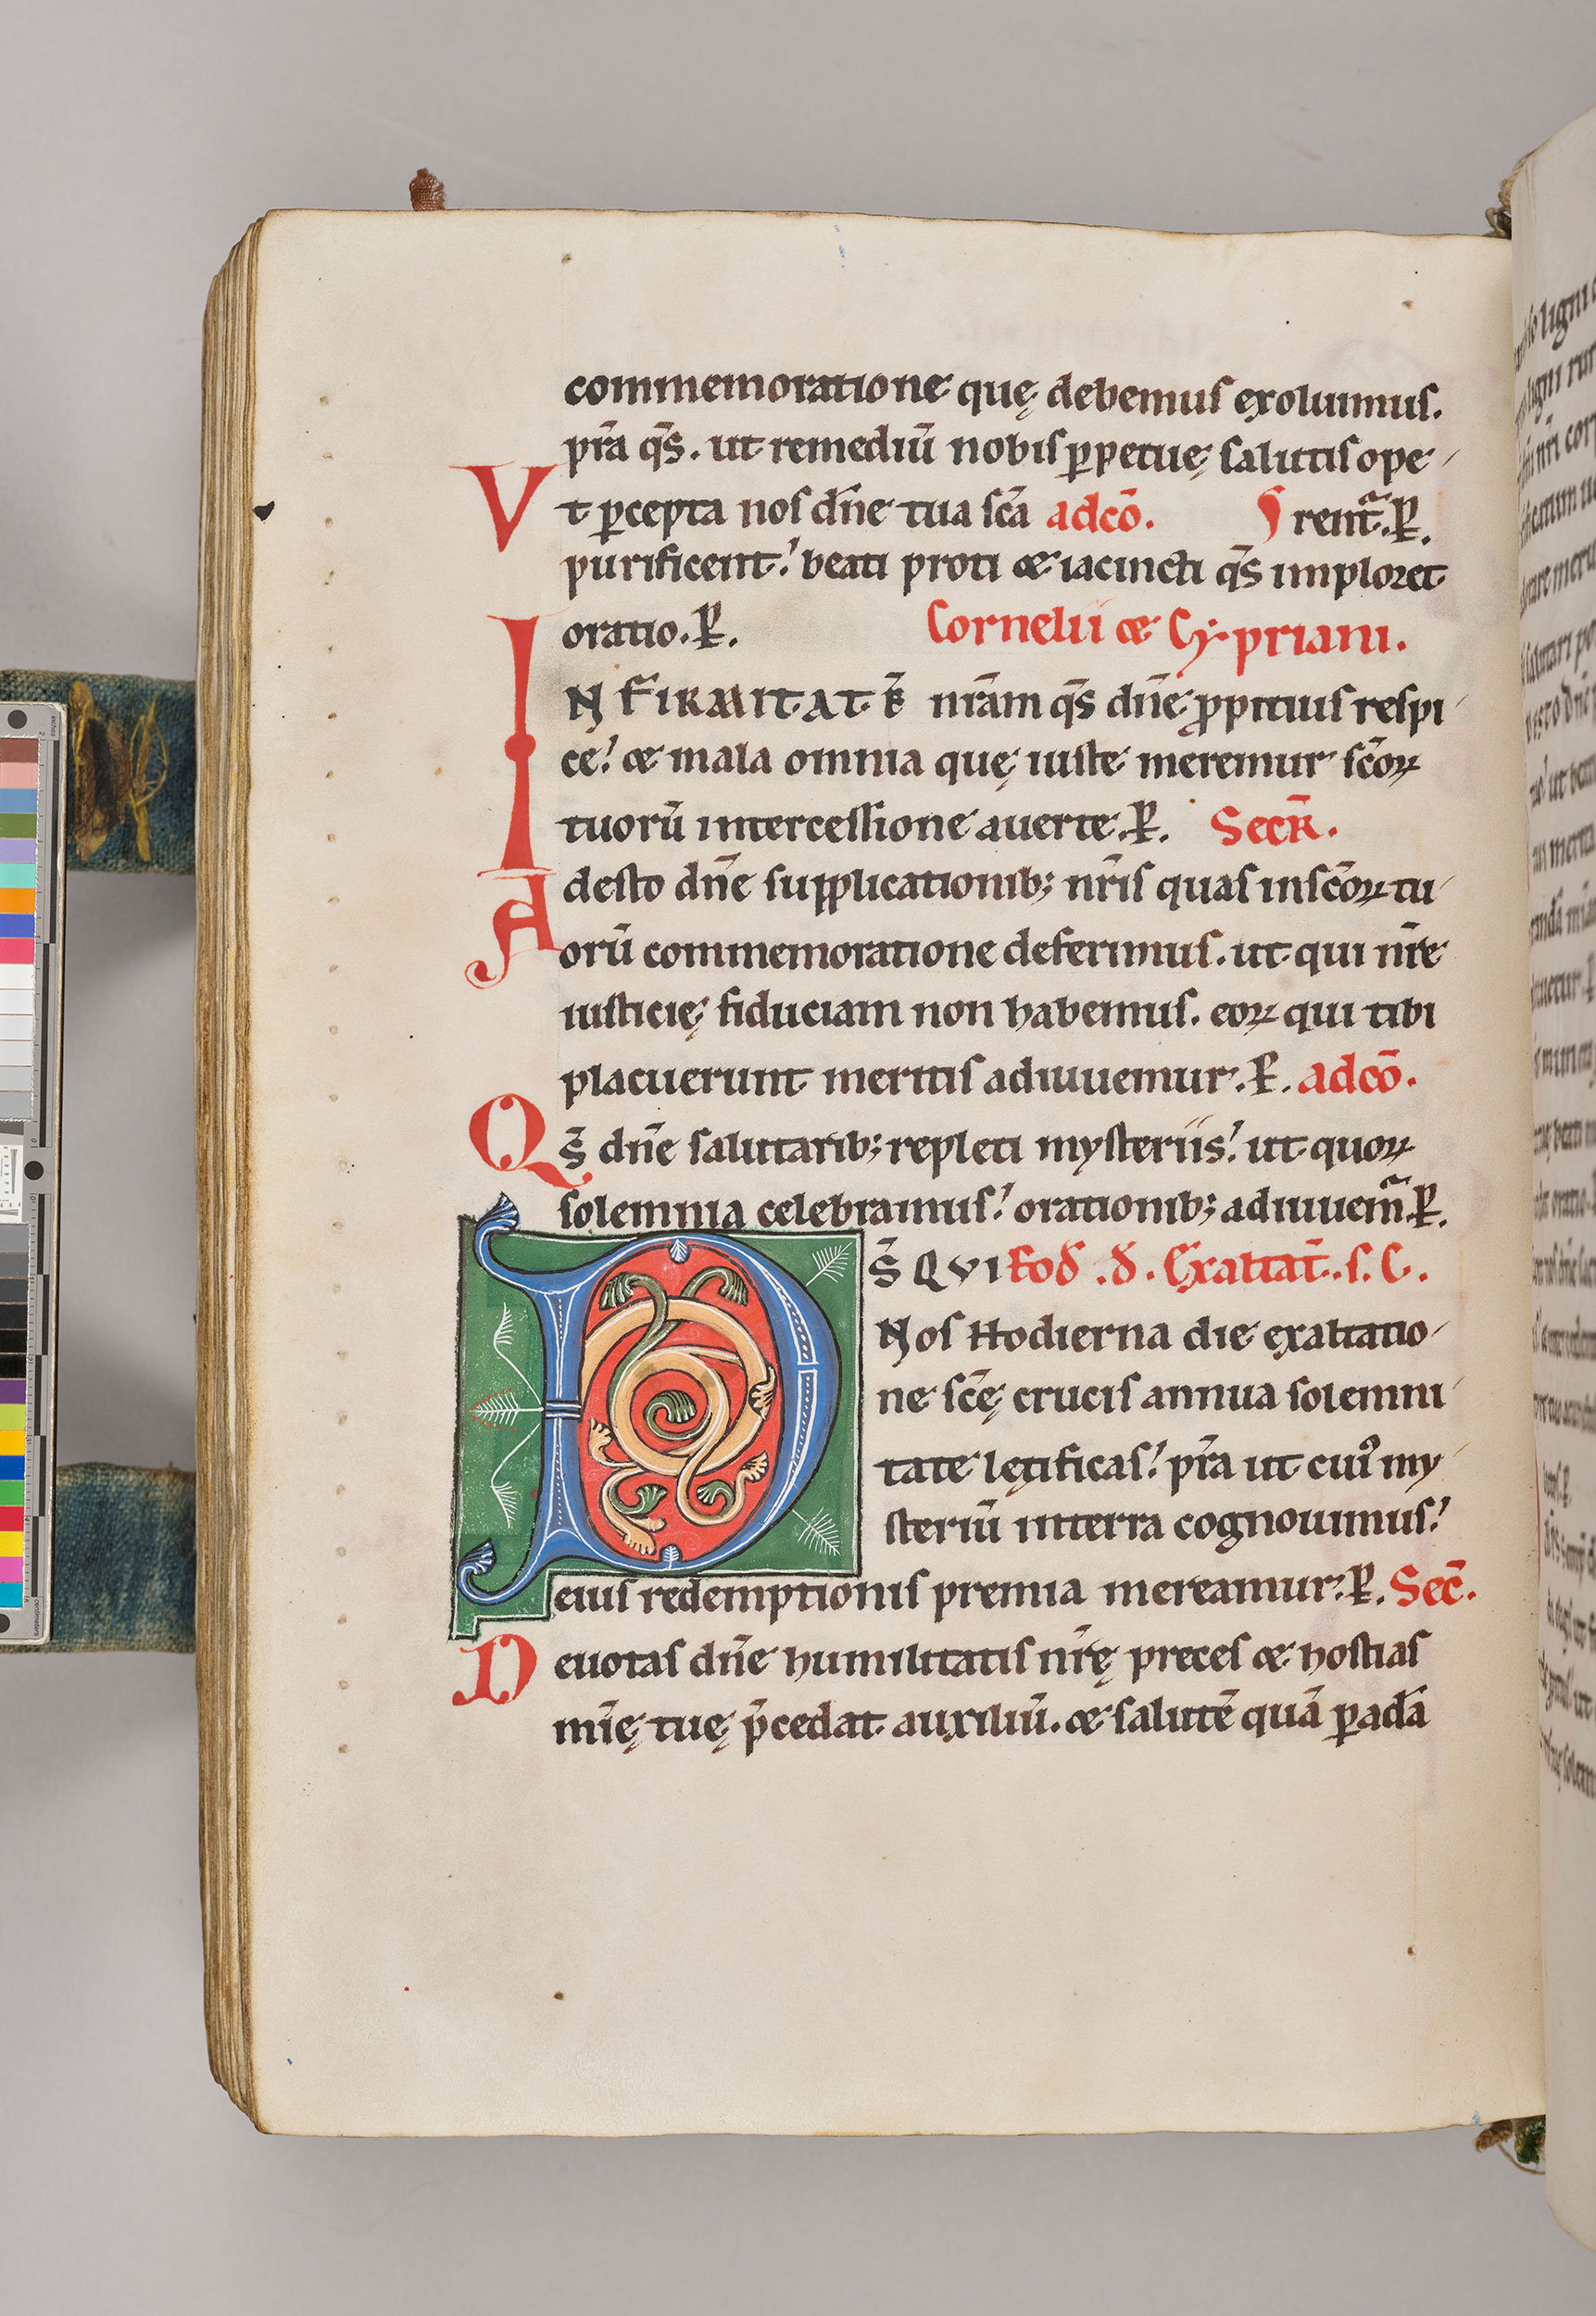 commemoratione quę debemus exoluimus.
p̄ra q̄s. ut remediū nobis ꝑpetuę salutis ope
Vt ꝑcepta nos dn̄e tua sc̄a adcō. rentᷓ.ꝑ.
purificent! beati proti & iacincti q̄s imploret
oratio.ꝑ. Cornelii & Cypriani.
INFIRMITATE̅ nr̄am q̄s dn̄e ꝓpitius respi
ce! & mala omnia quę iuste meremur sc̄oꝝ
tuorū intercessione auerte.ꝑ. Secr̄.
Adesto dn̄e supplicationib; nr̄is quas in sc̄oꝝ tu
orū commemoratione deferimus. ut qui nr̄e
iusticię fiduciam non habemus. eoꝝ qui tibi
placuerunt meritis adiuuemur.ꝑ. adcō.
Qs̄ dn̄e salutarib; repleti mysteriis! ut quoꝝ
solemnia celebramus! orationib; adiuuemᷓ.ꝑ.
Ds̄ QVI Eod̄.d. Exaltat̄.s.C.
Nos Hodierna die exaltatio
ne sc̄ę crucis annua solemni
tate lętificas! p̄ra ut cuiꝰ my
steriū in terra cognouimus!
eius redemptionis premia mereamur.ꝑ. Sec̄.
Deuotas dn̄e humilitatis nr̄ę preces & hostias
mīę tuę p̄cedat auxiliū. & salutē quā ꝑ adā